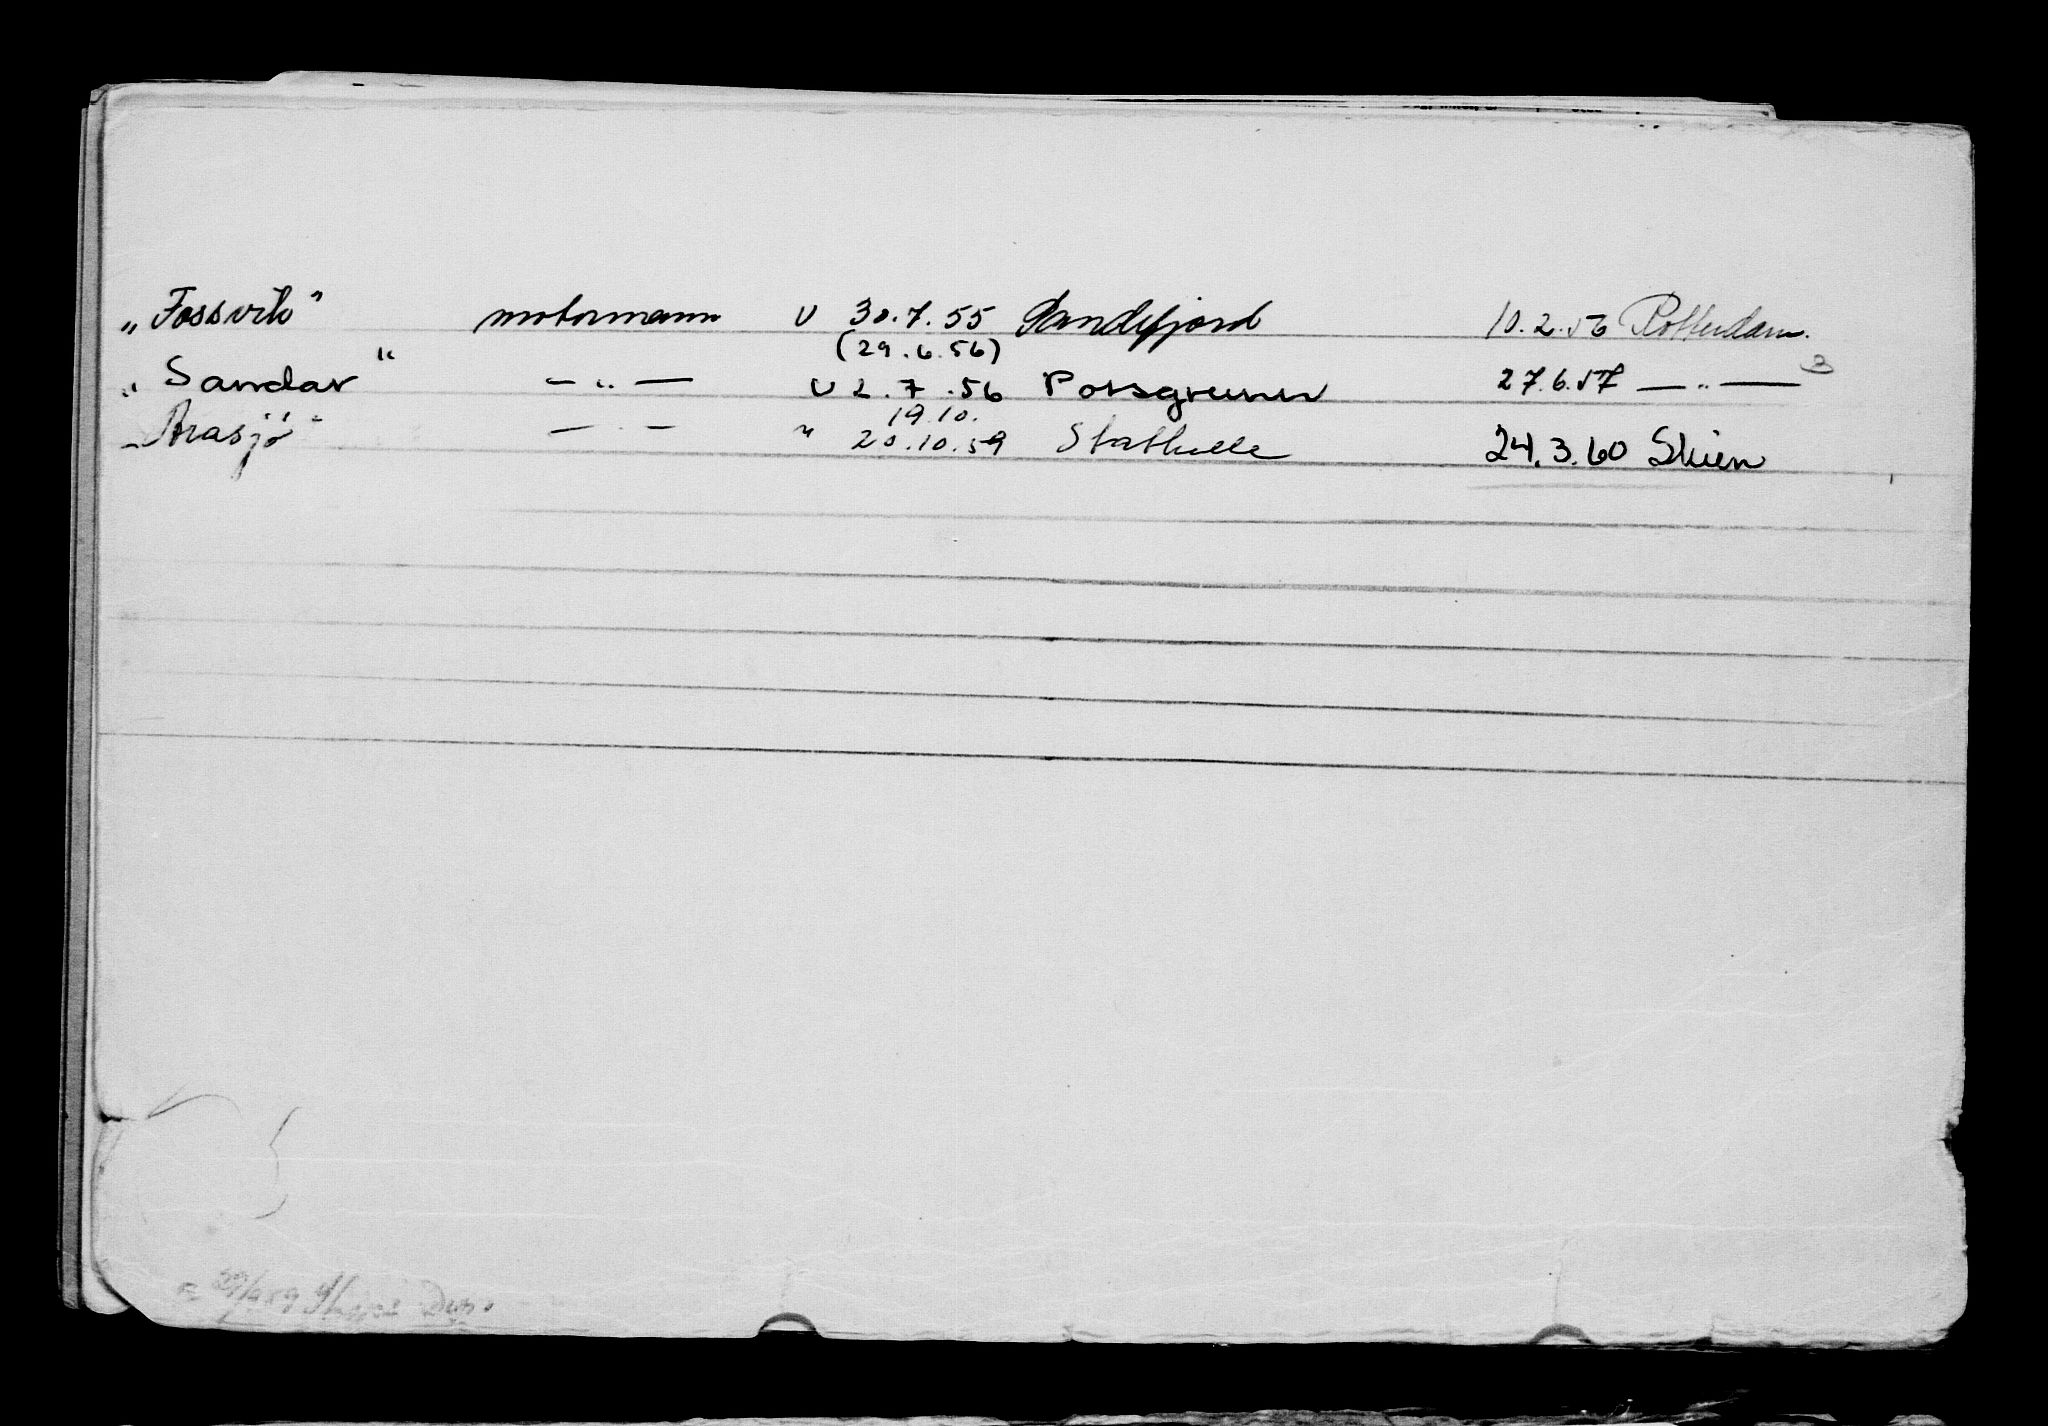 „Fossvik" motormann U 30.7.55 Sandefjord 10.2.56 Rotterdam.
(29.6.56)
„Sandar" — „ — U 2.7.56 Porsgrunn 27.6.57 — „ —
19.10.
„Arasjö" — „ — " 20.10.59 Stathelle 24.3.60 Skien